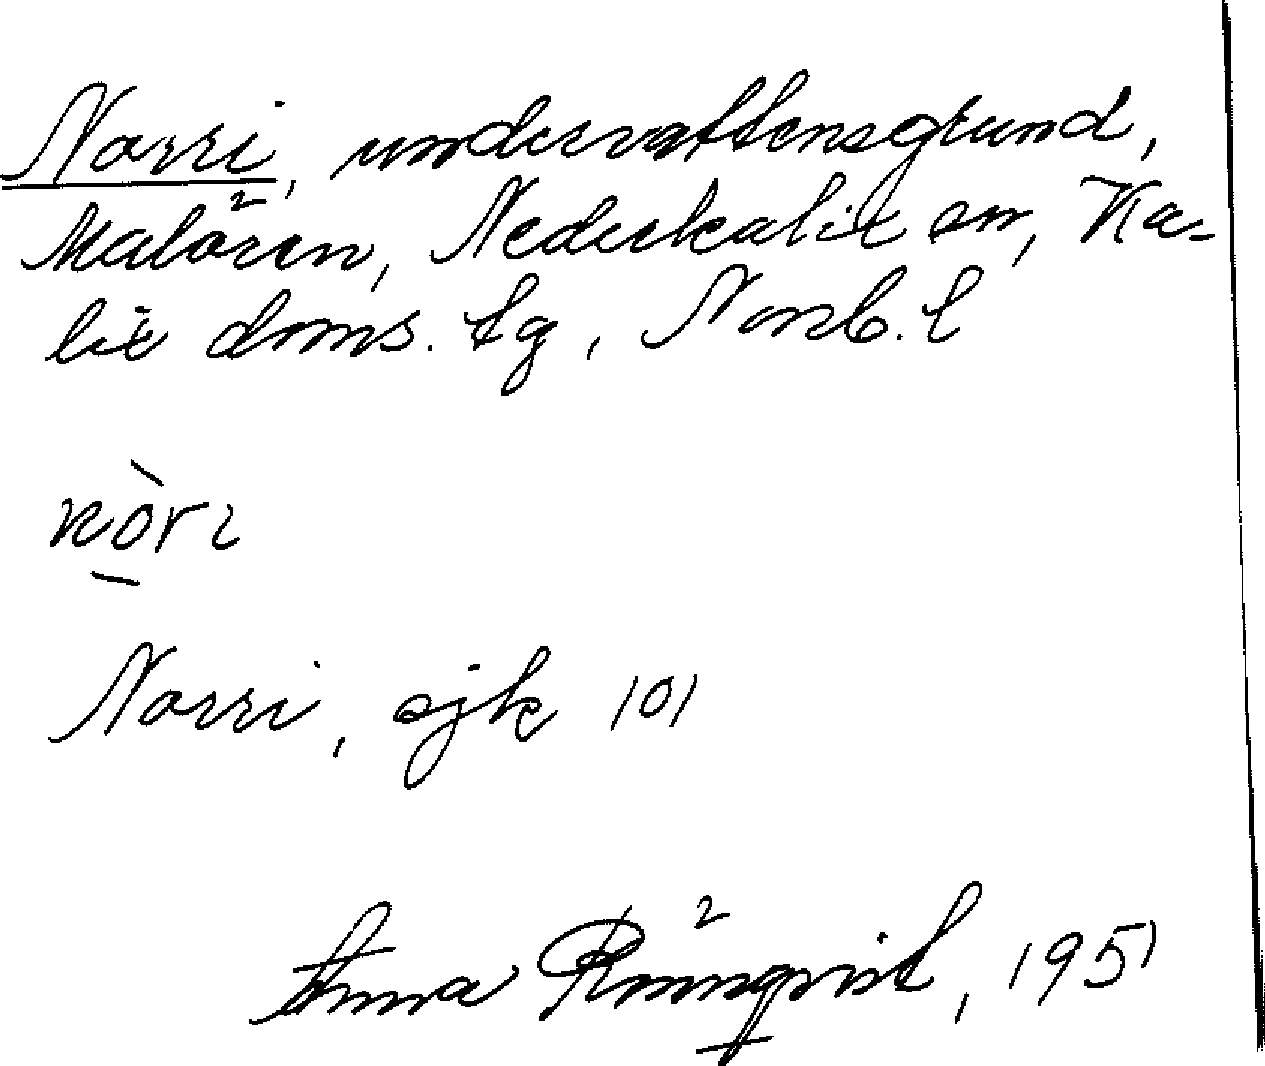 Norri, undervattensgrund,
Malören, Nederkalix sn, Ka-
lix doms. tg, Norrb. l
nòri
Norri, sjk 101
Anna Rönnqvist, 1951